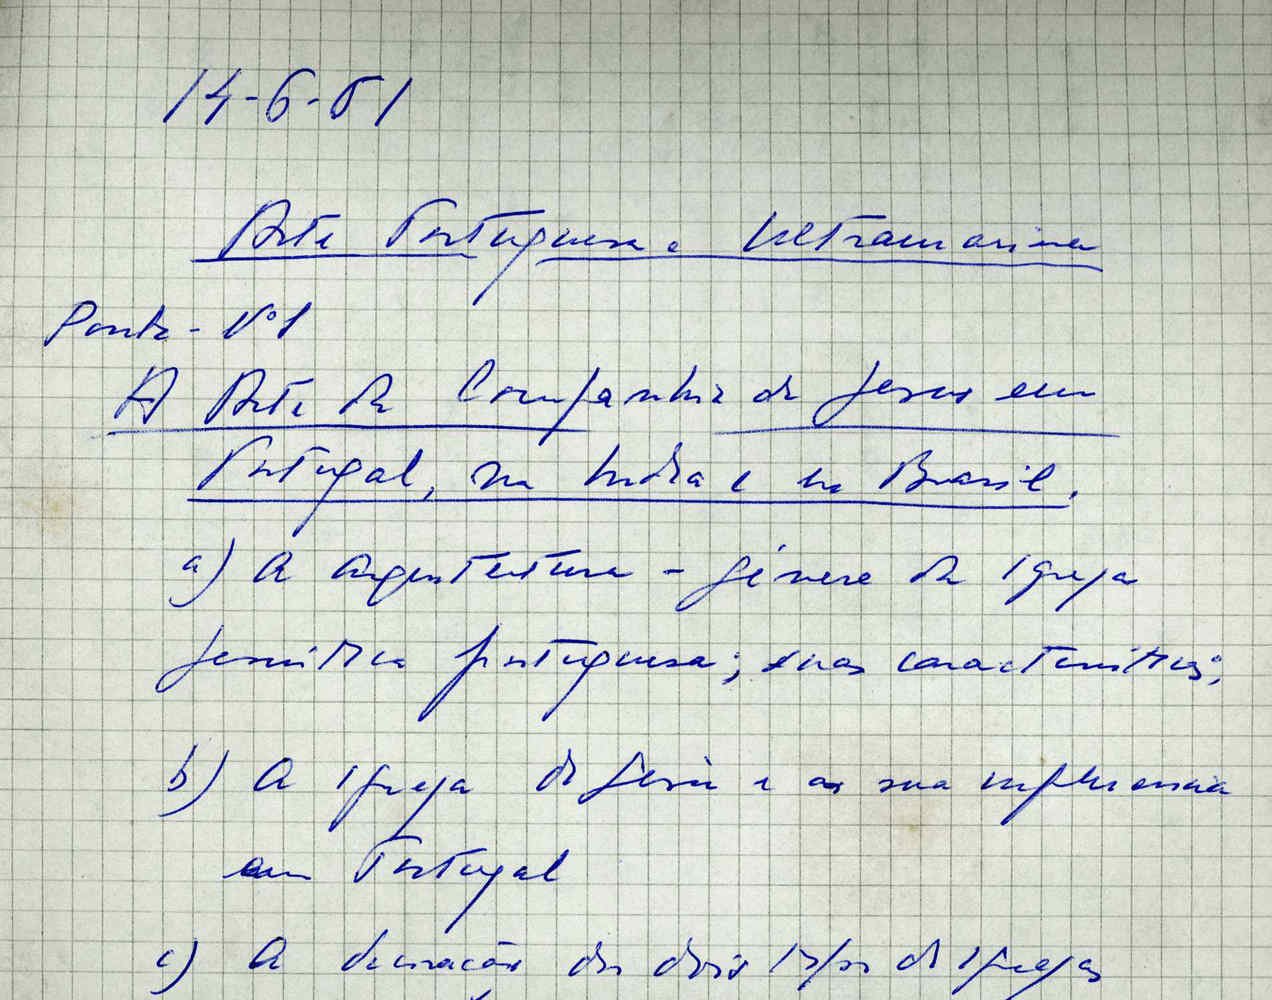 14-6-61
Arte Portuguesa e Ultramarina
Ponto - Nº1
A Arte da Companhia de Jesus em
Portugal, na India e no Brasil.
a) A arquitectura - género da Igreja
jesuitica portuguesa; suas caracteristicas;
b) A igreja de Jesus e a sua influencia
em Portugal
c) A decoração dos dois tipos de Igrejas